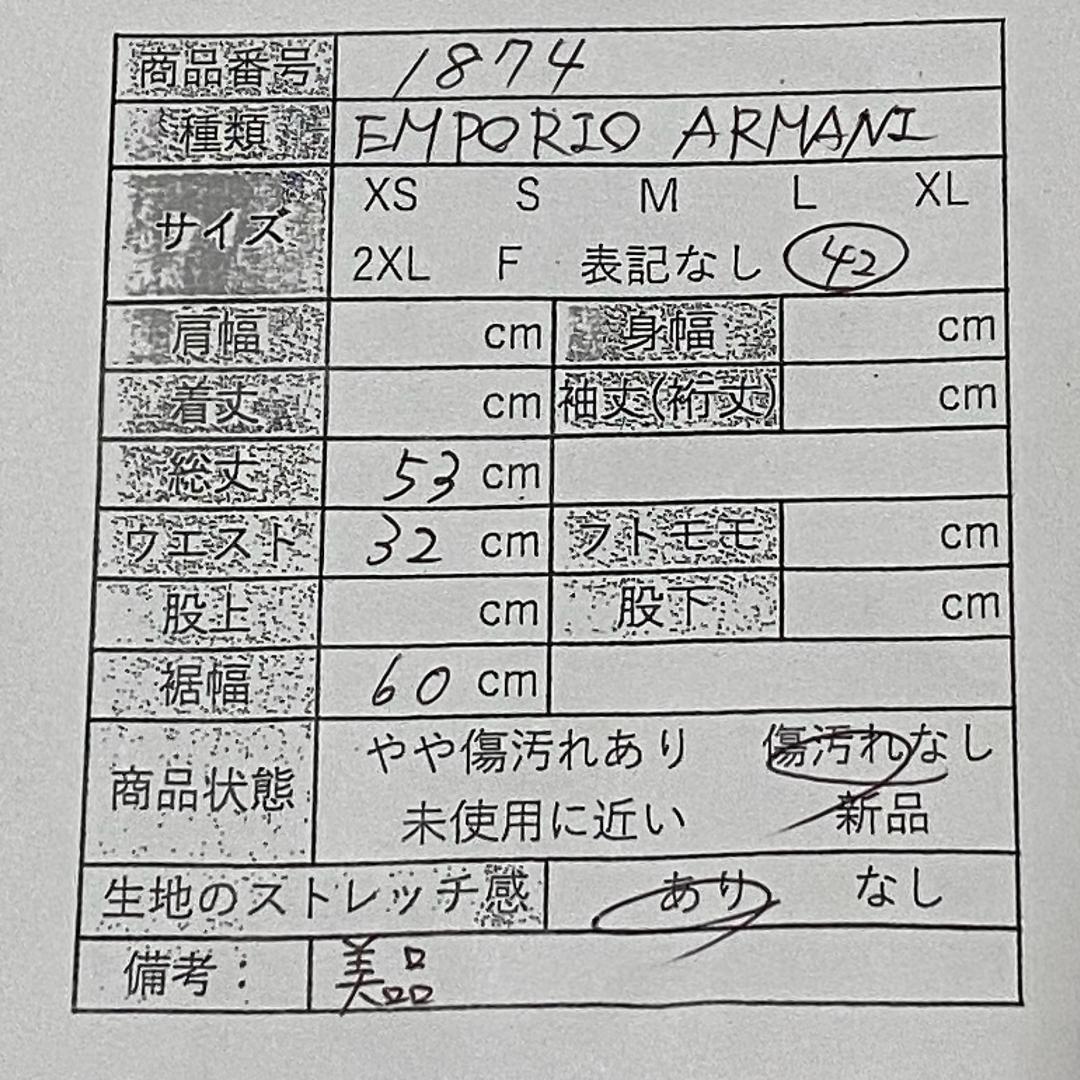 商品番号 1874
種類 EMPORIO ARMANI
サイズ XS S M L XL
2XL F 表記なし 42
肩幅 cm 身幅 cm
着丈 cm 袖丈(裄丈) cm
総丈 53 cm
ウエスト 32 cm フトモモ cm
股上 cm 股下 cm
裾幅 60 cm
商品状態 やや傷汚れあり 傷汚れなし
未使用に近い 新品
生地のストレッチ感 あり なし
備考： 美品